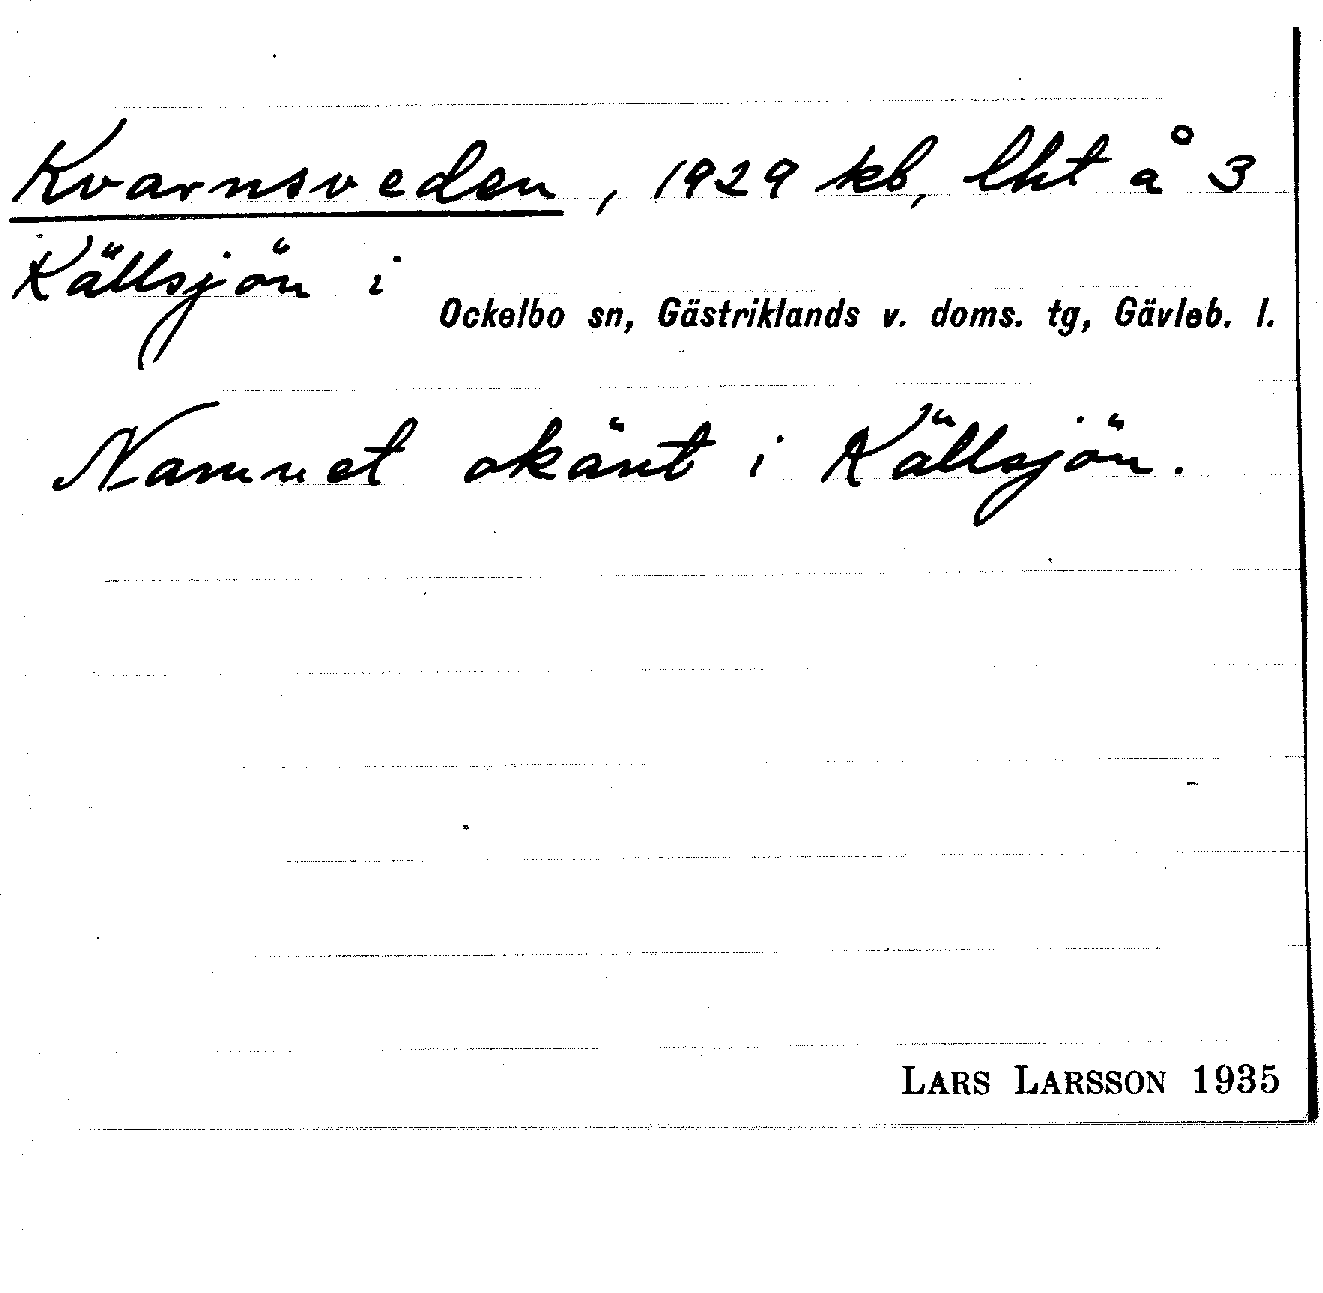 Kvarnsveden, 1929 kb, lht å 3
Källsjön i
Ockelbo sn, Gästriklands v. doms. tg, Gävleb. l.
Namnet okänt i Källsjön.
LARS LARSSON 1935